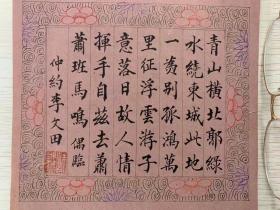 青山橫北郭綠
水繞東城此地
一爲別孤鴻萬
里征浮雲游子
意落日故人情
揮手自茲去蕭
蕭班馬鳴 偶臨
仲約李文田